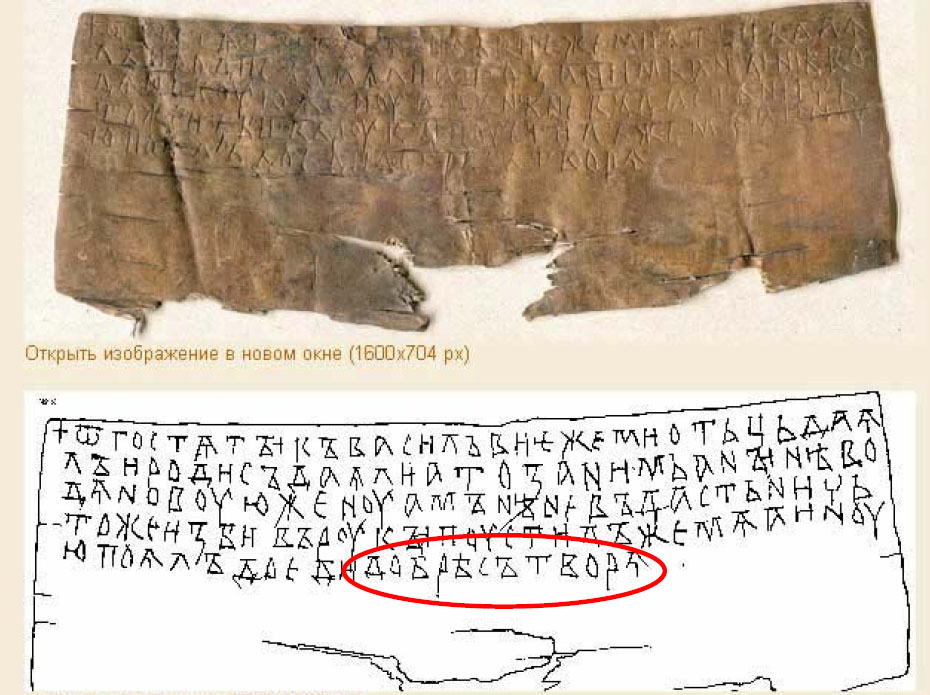 Открыть изображение в новом окне (1600x704 px)
+ѿгостѧтꙑкъвасильвиѥжемиотьцьдаꙗ
лъиродисъдаꙗлиатозанимьанꙑнѣво
дѧновоуюженоуамънѣневъдастьничь
тожеизбивъроукꙑпоустилъжемѧаиноу
юпоꙗлъдоедидобрѣсътворѧ